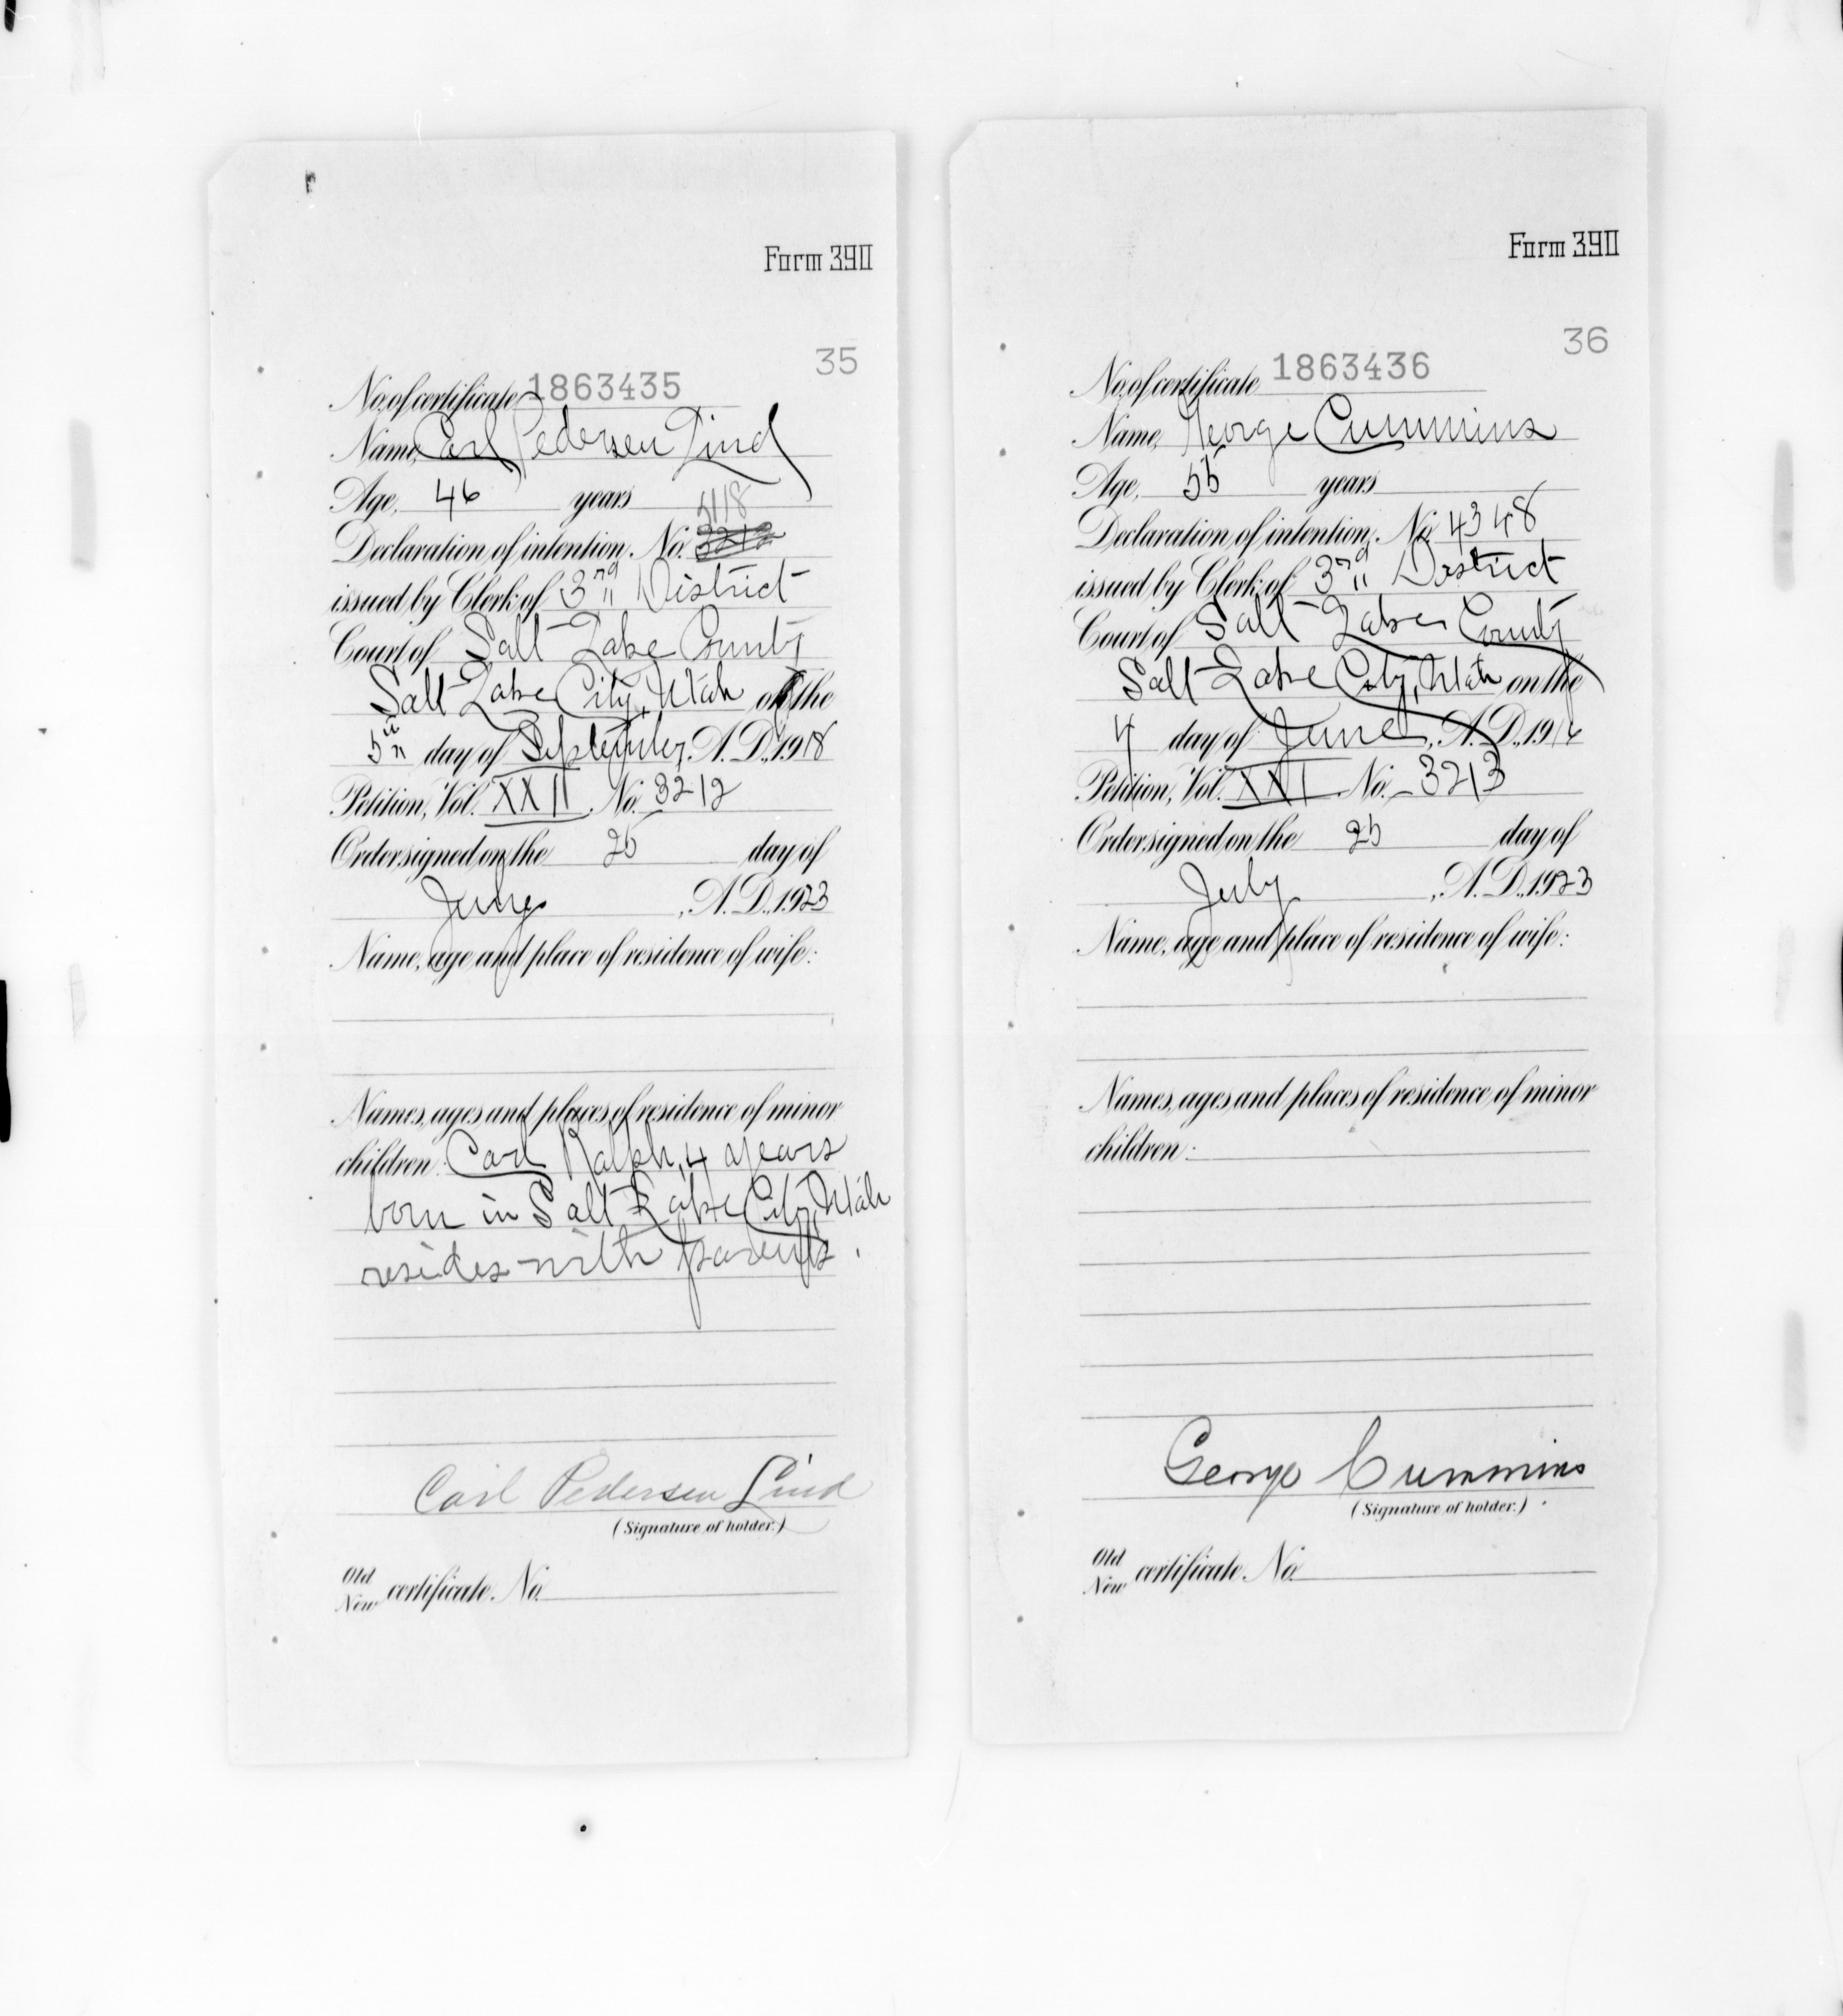 Form 390
35
No. of certificate 1863435
Name, Carl Pedersen Lind
Age, 46 years
5118
Declaration of intention. No. 3212
issued by Clerk of 3rd District
Court of Salt Lake County
Salt Lake City, Utah on the
5th day of September, A.D., 1918
Petition, Vol. XXII No. 3212
Order signed on the 25 day of
A.D., 1923
Name, age and place of residence of wife:
Names, ages and places of residence of minor
children: Carl Ralph, 4 years
born in Salt Lake City, Utah
resides with parents.
Carl Pedersen Lind
(Signature of holder.)
Old
New certificate. No.
Form 390
36
No. of certificate 1863436
Name, George Cummins
Age, 55 years
Declaration of intention. No. 4348
issued by Clerk of 3rd District
Court of Salt Lake County
Salt Lake City, Utah on the
4 day of June, A.D., 1916
Petition, Vol. XXI No. 3213
Order signed on the 25 day of
July, A.D., 1923
Name, age and place of residence of wife:
Names, ages and places of residence of minor
children:
George Cummins
(Signature of holder.)
Old
New certificate. No.